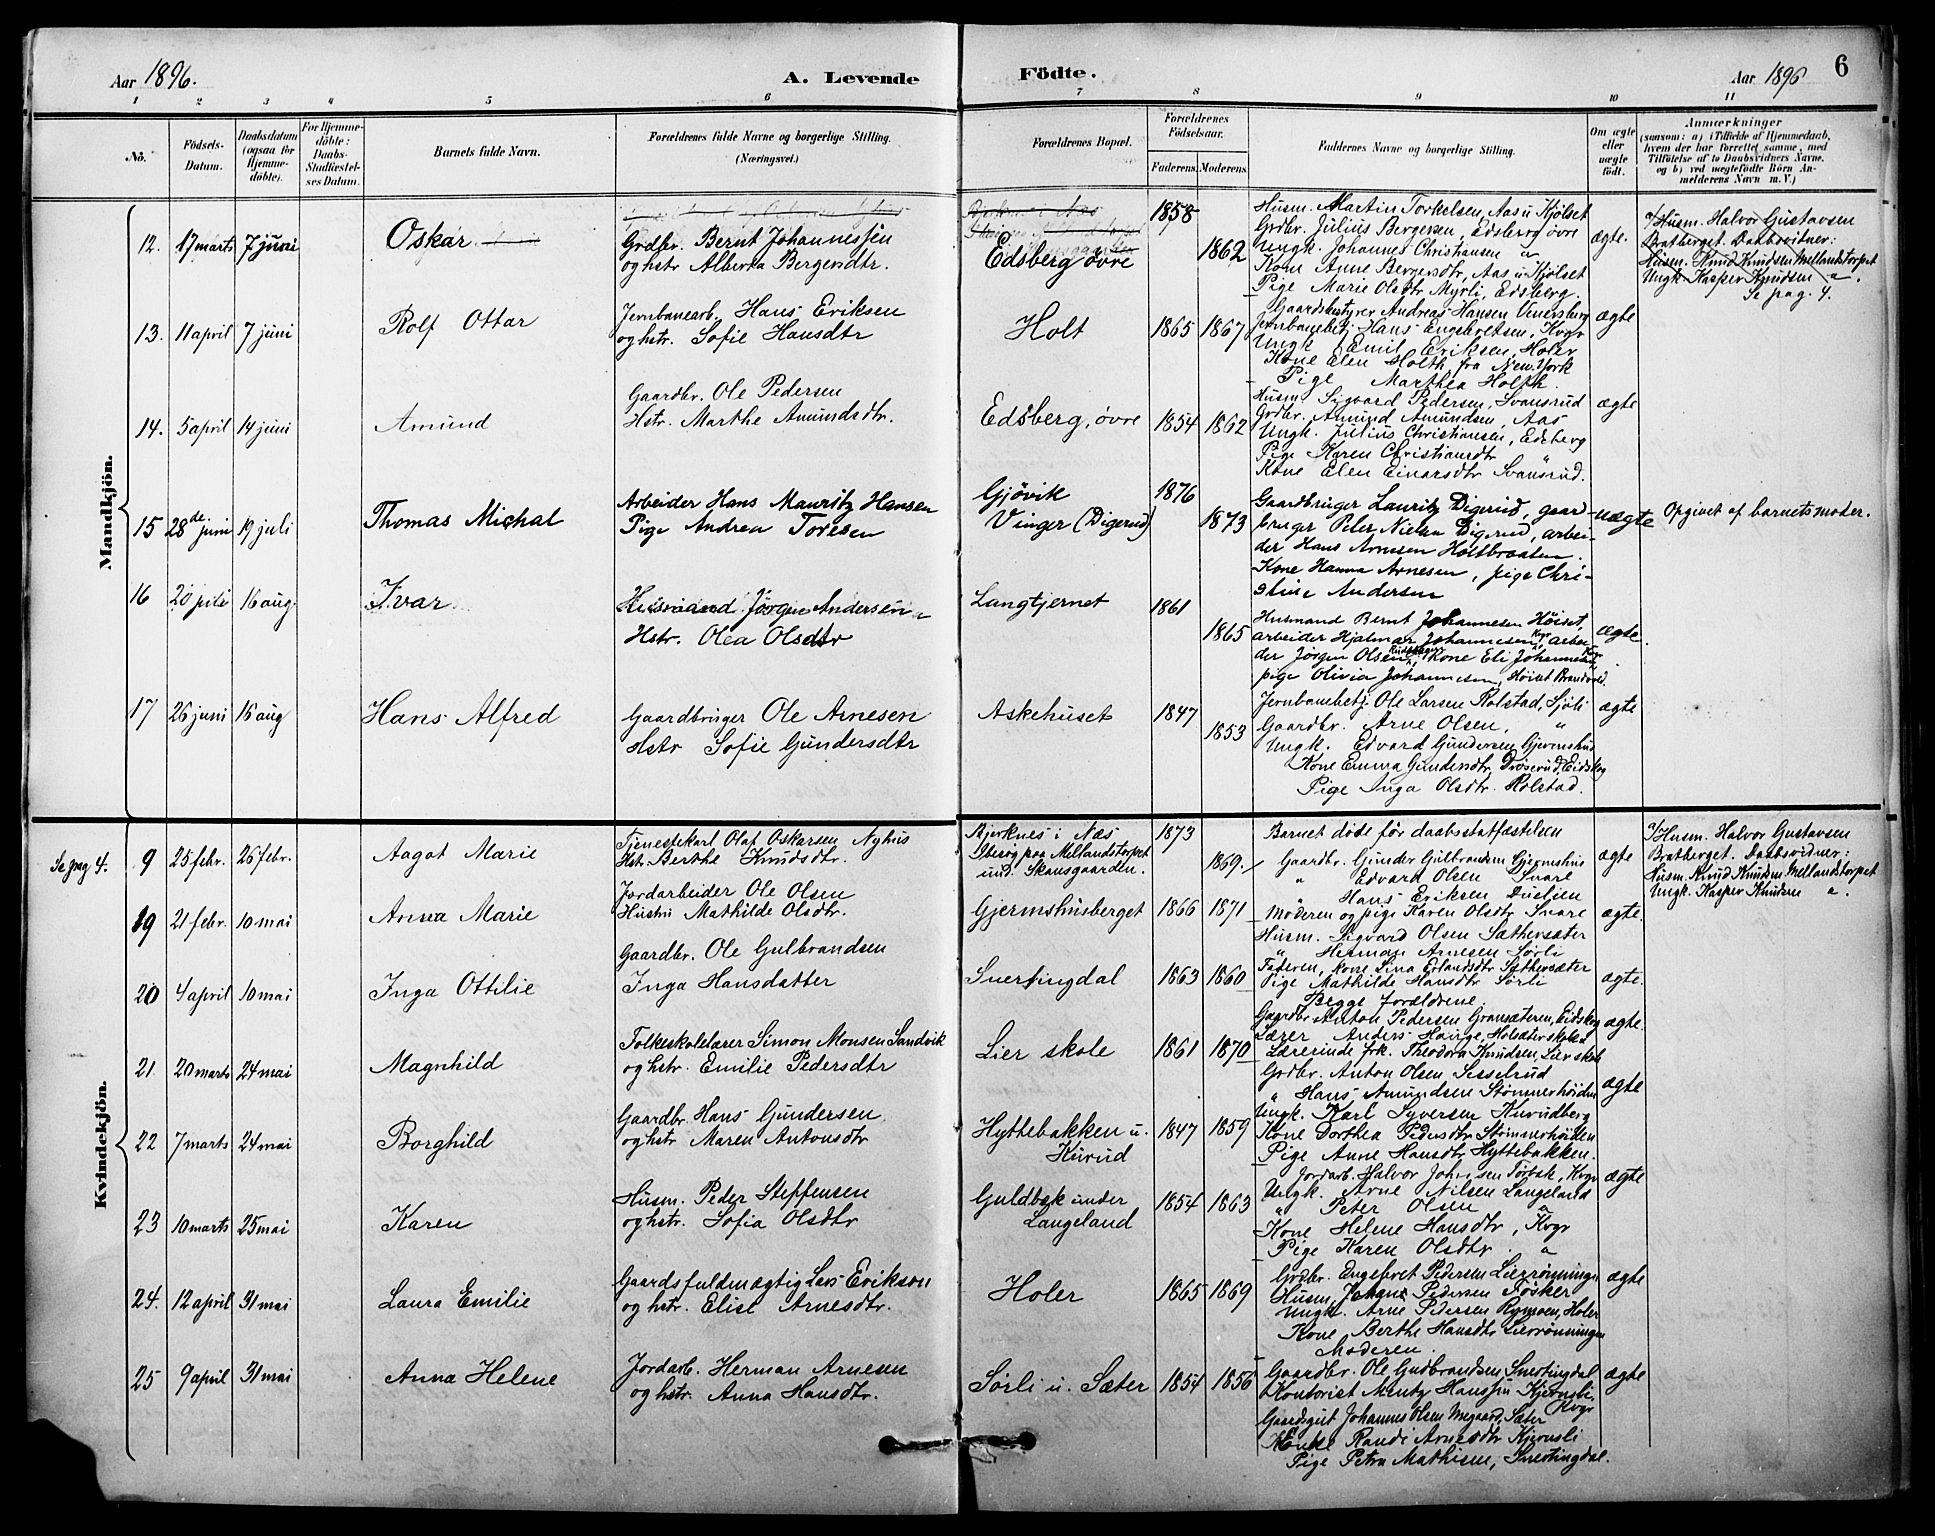 Aar 1896.
A. Levende
Födte.
Aar 1896
6
1 2 3 4 5 6 7 8 9 10 11
No.
Födsels-Datum.
Daabsdatum (ogsaa för Hjemme-döbte).
For Hjemme-döbte: Daabs-Stadfæstel-ses Datum.
Barnets fulde Navn.
Forældrenes fulde Navne og borgerlige Stilling.
(Næringsvei.)
Forældrenes Bopæl.
Forældrenes Födselsaar.
Faderens. Moderens.
Faddernes Navne og borgerlige Stilling.
Om ægte eller uægte födt.
Anmærkninger
(saasom: a) i Tilfælde af Hjemmedaab, hvem der har forrettet samme, med Tilföielse af to Daabsvidners Navne, og b) ved uægtefödte Börn An-melderens Navn m. V.)
Mandkjön.
12. 17 marts 7 juni Oskar
Grdbr. Bernt Johannessen
og hstr Alberta Bergersdtr.
Edsberg övre
1858 1862
Husm. Martin Torkelsen, Aas u Kjölset
Grdbr. Julius Bergersen, Edsberg övre
Ungk. Johannes Christiansen "
Kone Anne Bergersdtr, Aas u Kjölset
Pige Marie Olsdtr Myrli, Edsberg.
ægte.
a/ Husm. Halvor Gustavsen
Bratberget. Daabsvitner:
Husm. Knud Knudsen Mellandstorpet
Ungk. Kasper Knudsen "
Se pag. 4.
13. 11 april 7 juni Rolf Ottar
Jernbanearb. Hans Eriksen
og hstr. Sofie Hansdtr
Holt
1865 1867
Gaardsbestyrer Andreas Hansen Vinersberg
Jernbanebetj. Hans Engebretsen, Kvgr
Ungk Emil Eriksen, Holer
Kone Elen Holth fra New York
Pige Marthea Holth.
ægte
14. 5 april 14 juni Amund
Gaardbr. Ole Pedersen
Hstr. Marthe Amundsdtr.
Edsberg, övre
1854 1862
Husm. Sigvard Pedersen, Svansrud
Grdbr. Amund Amundsen, Aas
Ungk. Julius Christiansen, Edsberg
Pige Karen Christiansdtr "
Kone Elen Einarsdtr Svansrud.
ægte
15 28de juni 19 juli Thomas Michal
Arbeider Hans Mauritz Hansen
Pige Andrea Toresen
Gjövik
Vinger (Digerud)
1876 1873
Gaardbruger Lauritz Digerud, gaar-
bruger Peter Nielsen Digerud, arbei-
der Hans Arnesen Holtbraaten.
Kone Hanna Arnesen, pige Chri-
stine Andersen
uægte
Opgivet af barnets moder.
16 20 juli 16 aug Ivar
Husmand Jörgen Andersen
Hstr. Olea Olsdtr
Langtjernet
1861 1865
Husmand Bernt Johannesen Höiset,
arbeider Hjalmar Johannesen, Kvgr arbei-
der Jörgen Olsen, kone Eli Johannesen
pige Olivia Johannesen, Höiset Brandvold.
ægte
17 26 juni 16 aug Hans Alfred
Gaardbruger Ole Arnesen
Hstr Sofie Gundersdtr
Askehuset
1847 1853
Jernbanebetj. Ole Larsen Rolstad, Sjöli
Gaardbr. Arne Olsen, "
Ungk. Edvard Gundersen Gjermshus
Kone Emma Gundersdtr, Dröserud, Eidskog
Pige Inga Olsdtr. Rolstad.
ægte
Kvindekjön.
Se pag 4. 9 25 febr. 26 febr. Aagot Marie
Tjenestekarl Olaf Oskarsen Nyhus
Hst. Berthe Knudsdtr.
Bjerknes i Næs
Iberig paa Mellandstorpet
und. Skansgaarden.
1873 1869.
Barnet döde för daabsstatfæstelsen
ægte
a/ Husm. Halvor Gustavsen
Bratberget. Daabsvidner:
Husm. Knud Knudsen Mellandstorpet
Ungk. Kasper Knudsen "
19 21 febr. 10 mai Anna Marie
Jordarbeider Ole Olsen
Hustru Mathilde Olsdtr.
Gjermshusberget
1866 1871
Gaardbr. Gunder Gulbrandsen Gjermshus
" Edvard Olsen Svare
" Hans Eriksen Duesjen
Moderen og pige Karen Olsdtr Svare
ægte.
20 4 april 10 mai Inga Ottilie
Gaardbr. Ole Gulbrandsen
Inga Hansdatter
Snertingdal
1863 1860
Husm. Sigvard Olsen Sathersæter
" Herman Arnesen Sörli
Faderen, kone Lina Erlandsdtr Sathersæter
Pige Mathilde Hansdtr Sörli
ægte.
21 20 marts 24 mai Magnhild
Folkeskolelærer Simon Monsen Sandvik
og hstr. Emilie Pedersdtr
Lier skole
1861 1870
Begge Forældrene.
Gaardbr Anton Pedersen Gransæteren, Eidskog
Lærer Anders Hauge, Holsæter skole
Lærerinde frk. Theodora Knudsen, Lier skole
ægte.
22 7 marts 24 mai Borghild
Gaardbr. Hans Gundersen
og hstr. Maren Antonsdtr
Hyttebakken u.
Kurud
1847 1859
Grdbr. Anton Olsen Sesselrud
" Hans Amundsen Stömmerhöiden
Ungk. Karl Syversen Kurudberg
Kone Dorthea Pedersdtr. Stömmerhöiden
Pige Anne Hansdtr Hyttebakken.
ægte
23 10 marts 25 mai Karen
Husm. Peder Steffensen
og hstr. Sofia Olsdtr
Guldbæk under
Langeland
1854 1863
Jordarb. Halvor Johnsen Törbak, Kvgr
Ungk. Arne Nilsen Langeland
" Peter Olsen "
Kone Helene Hansdtr, Kvgr
Pige Karen Olsdtr. "
ægte
24. 12 april 31 mai Laura Emilie
Gaardsfuldmægtig Lars Erikson
og hstr. Elise Arnesdtr.
Holer
1865 1869
Grdbr. Engebret Pedersen Lierrönningen
Husm. Johans Pedersen Fösker
Ungk. Arne Pedersen Rymoen, Holer
Kone Berthe Hansdtr Lierrönningen
Moderen.
ægte
25 9 april 31 mai Anna Helene
Jordarb. Herman Arnesen
og hstr. Anna Hansdtr.
Sörli u. Sæter
1854 1856
Gaardbr. Ole Gudbrandsen, Snertingdal
Kontorist Mentz Hanssen Kjernsli
Kvgr
Gaardsgut Johannes Olsen Megaard, Sæter
Enke Randi Arnesdtr Kjernsli
Pige Petra Mathisen, Snertingdal.
ægte